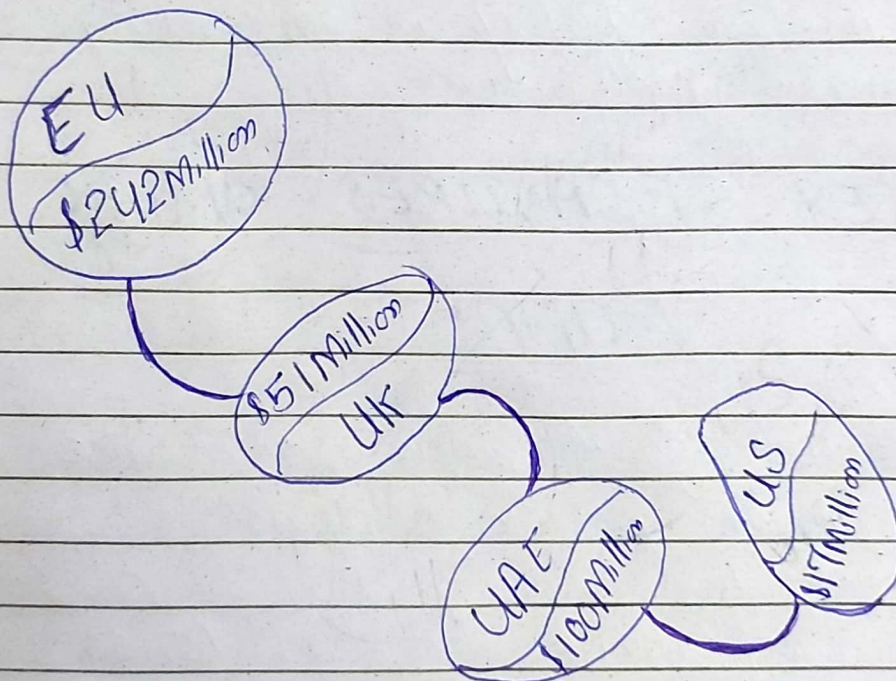 EU
$242Million
$51Million
UK
UAE
$100Million
US
$17Million